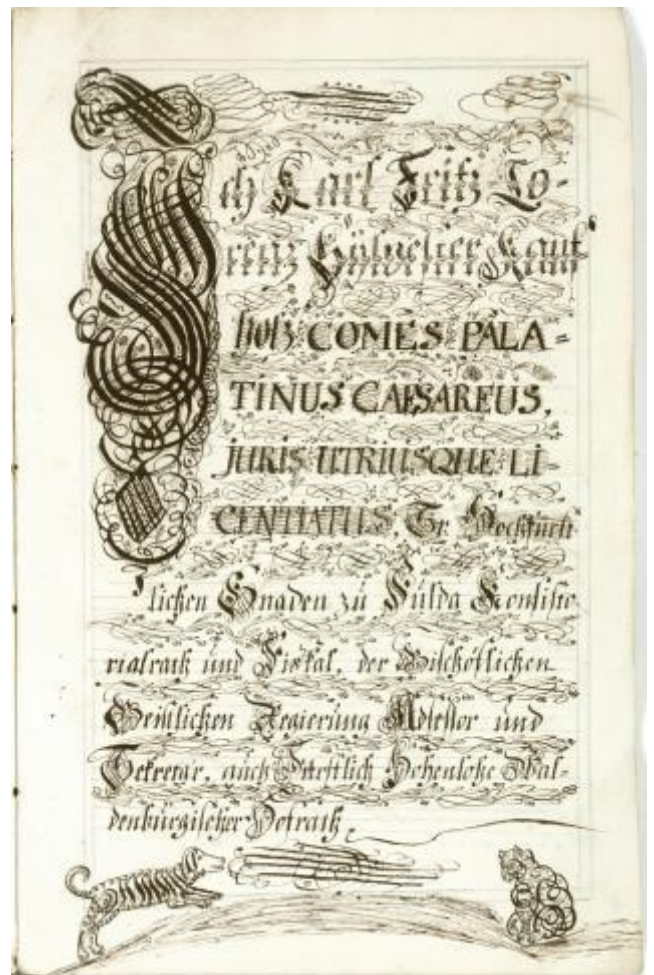 Ich Karl Fritz Lo-
renz Sylvester Kauf
holz COMES PALA=
TINUS CAESAREUS,
JURIS UTRIUSQUE LI-
CENTIATUS, Sr. Hochfürst
lichen Gnaden zu Fulda Konsisto
rialrath und Fiskal, der Bischöflichen
Geistlichen Regierung Assessor und
Sekretar, auch Fürstlich Hohenlohe Wal-
denburgischer Hofrath,